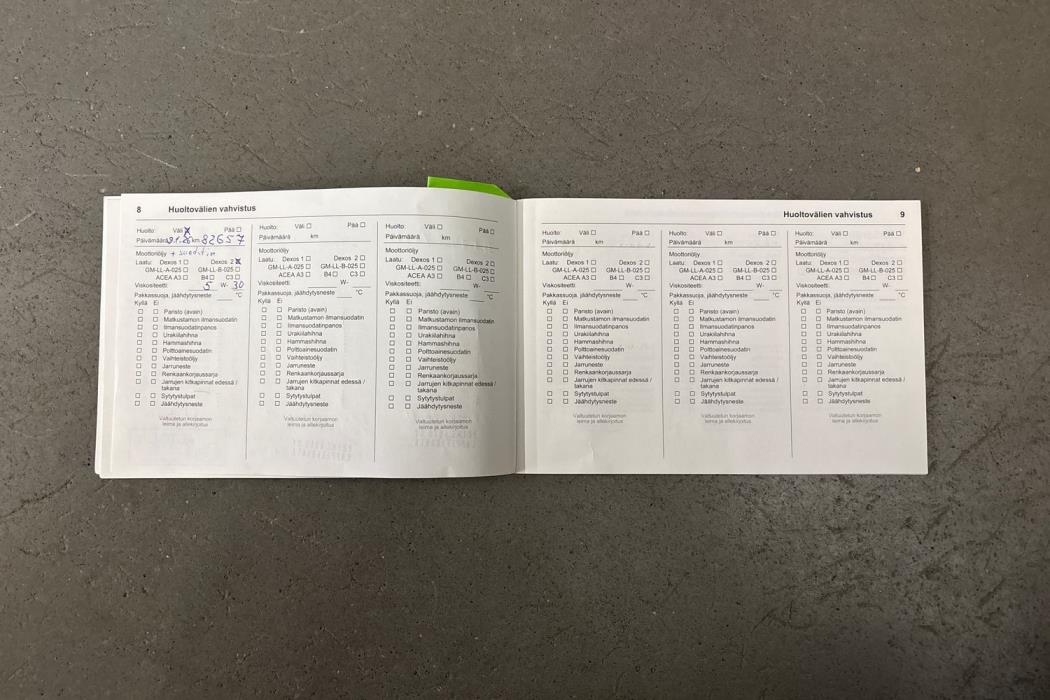 8 Huoltovälien vahvistus
Huolto: Väli ☒ Pää ☐
Päivämäärä km 82657
Moottoriöljy
Laatu: Dexos 1 ☐ Dexos 2 ☒
GM-LL-A-025 ☐ GM-LL-B-025 ☐
ACEA A3 ☐ B4 ☐ C3 ☐
Viskositeetti: 5 W- 30
Pakkassuoja, jäähdytysneste °C
Kyllä Ei
☐ ☐ Paristo (avain)
☐ ☐ Matkustamon ilmansuodatin
☐ ☐ Ilmansuodatinpanos
☐ ☐ Urakiilahihna
☐ ☐ Hammashihna
☐ ☐ Polttoainesuodatin
☐ ☐ Vaihteistoöljy
☐ ☐ Jarruneste
☐ ☐ Renkaankorjaussarja
☐ ☐ Jarrujen kitkapinnat edessä /
takana
☐ ☐ Sytytystulpat
☐ ☐ Jäähdytysneste
Valtuutetun korjaamon
leima ja allekirjoitus
Huolto: Väli ☐ Pää ☐
Päivämäärä km
Moottoriöljy
Laatu: Dexos 1 ☐ Dexos 2 ☐
GM-LL-A-025 ☐ GM-LL-B-025 ☐
ACEA A3 ☐ B4 ☐ C3 ☐
Viskositeetti: W-
Pakkassuoja, jäähdytysneste °C
Kyllä Ei
☐ ☐ Paristo (avain)
☐ ☐ Matkustamon ilmansuodatin
☐ ☐ Ilmansuodatinpanos
☐ ☐ Urakiilahihna
☐ ☐ Hammashihna
☐ ☐ Polttoainesuodatin
☐ ☐ Vaihteistoöljy
☐ ☐ Jarruneste
☐ ☐ Renkaankorjaussarja
☐ ☐ Jarrujen kitkapinnat edessä /
takana
☐ ☐ Sytytystulpat
☐ ☐ Jäähdytysneste
Valtuutetun korjaamon
leima ja allekirjoitus
Huolto: Väli ☐ Pää ☐
Päivämäärä km
Moottoriöljy
Laatu: Dexos 1 ☐ Dexos 2 ☐
GM-LL-A-025 ☐ GM-LL-B-025 ☐
ACEA A3 ☐ B4 ☐ C3 ☐
Viskositeetti: W-
Pakkassuoja, jäähdytysneste °C
Kyllä Ei
☐ ☐ Paristo (avain)
☐ ☐ Matkustamon ilmansuodatin
☐ ☐ Ilmansuodatinpanos
☐ ☐ Urakiilahihna
☐ ☐ Hammashihna
☐ ☐ Polttoainesuodatin
☐ ☐ Vaihteistoöljy
☐ ☐ Jarruneste
☐ ☐ Renkaankorjaussarja
☐ ☐ Jarrujen kitkapinnat edessä /
takana
☐ ☐ Sytytystulpat
☐ ☐ Jäähdytysneste
Valtuutetun korjaamon
leima ja allekirjoitus
Huoltovälien vahvistus 9
Huolto: Väli ☐ Pää ☐
Päivämäärä km
Moottoriöljy
Laatu: Dexos 1 ☐ Dexos 2 ☐
GM-LL-A-025 ☐ GM-LL-B-025 ☐
ACEA A3 ☐ B4 ☐ C3 ☐
Viskositeetti: W-
Pakkassuoja, jäähdytysneste °C
Kyllä Ei
☐ ☐ Paristo (avain)
☐ ☐ Matkustamon ilmansuodatin
☐ ☐ Ilmansuodatinpanos
☐ ☐ Urakiilahihna
☐ ☐ Hammashihna
☐ ☐ Polttoainesuodatin
☐ ☐ Vaihteistoöljy
☐ ☐ Jarruneste
☐ ☐ Renkaankorjaussarja
☐ ☐ Jarrujen kitkapinnat edessä /
takana
☐ ☐ Sytytystulpat
☐ ☐ Jäähdytysneste
Valtuutetun korjaamon
leima ja allekirjoitus
Huolto: Väli ☐ Pää ☐
Päivämäärä km
Moottoriöljy
Laatu: Dexos 1 ☐ Dexos 2 ☐
GM-LL-A-025 ☐ GM-LL-B-025 ☐
ACEA A3 ☐ B4 ☐ C3 ☐
Viskositeetti: W-
Pakkassuoja, jäähdytysneste °C
Kyllä Ei
☐ ☐ Paristo (avain)
☐ ☐ Matkustamon ilmansuodatin
☐ ☐ Ilmansuodatinpanos
☐ ☐ Urakiilahihna
☐ ☐ Hammashihna
☐ ☐ Polttoainesuodatin
☐ ☐ Vaihteistoöljy
☐ ☐ Jarruneste
☐ ☐ Renkaankorjaussarja
☐ ☐ Jarrujen kitkapinnat edessä /
takana
☐ ☐ Sytytystulpat
☐ ☐ Jäähdytysneste
Valtuutetun korjaamon
leima ja allekirjoitus
Huolto: Väli ☐ Pää ☐
Päivämäärä km
Moottoriöljy
Laatu: Dexos 1 ☐ Dexos 2 ☐
GM-LL-A-025 ☐ GM-LL-B-025 ☐
ACEA A3 ☐ B4 ☐ C3 ☐
Viskositeetti: W-
Pakkassuoja, jäähdytysneste °C
Kyllä Ei
☐ ☐ Paristo (avain)
☐ ☐ Matkustamon ilmansuodatin
☐ ☐ Ilmansuodatinpanos
☐ ☐ Urakiilahihna
☐ ☐ Hammashihna
☐ ☐ Polttoainesuodatin
☐ ☐ Vaihteistoöljy
☐ ☐ Jarruneste
☐ ☐ Renkaankorjaussarja
☐ ☐ Jarrujen kitkapinnat edessä /
takana
☐ ☐ Sytytystulpat
☐ ☐ Jäähdytysneste
Valtuutetun korjaamon
leima ja allekirjoitus